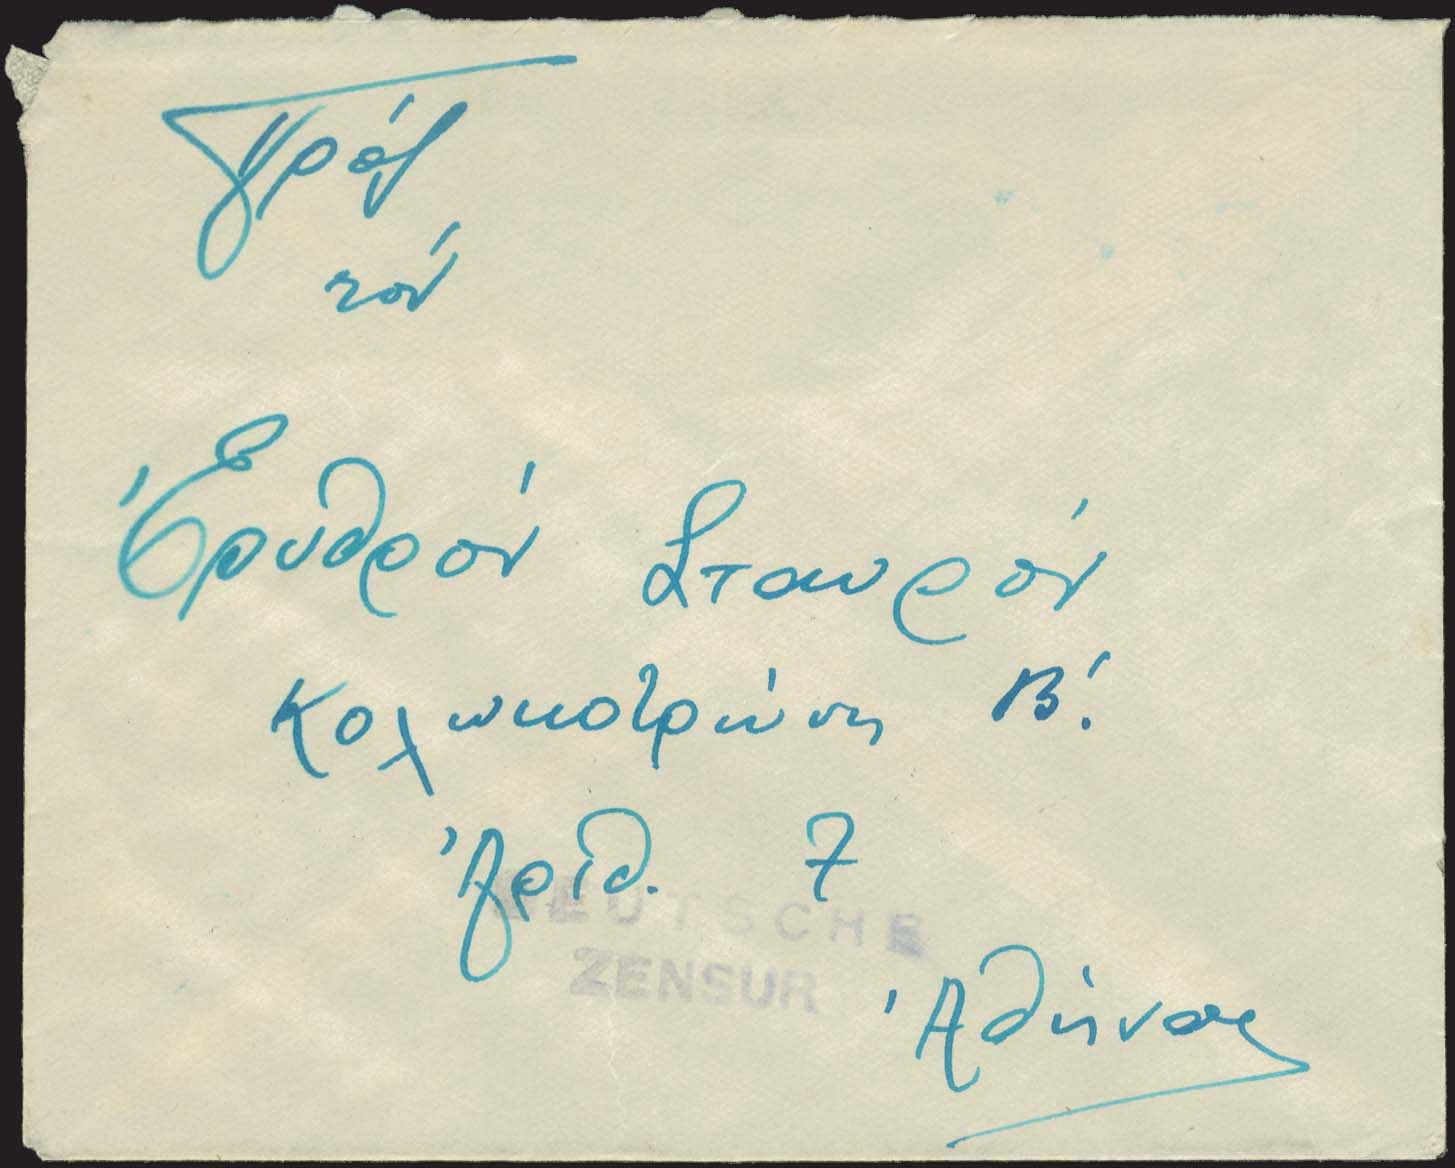 Πρός
τόν
Ἐρυθρόν Σταυρόν
Κολωκοτρώνη Β'.
Ἀριθ. 7
DEUTSCHE
ZENSUR
Ἀθήνας